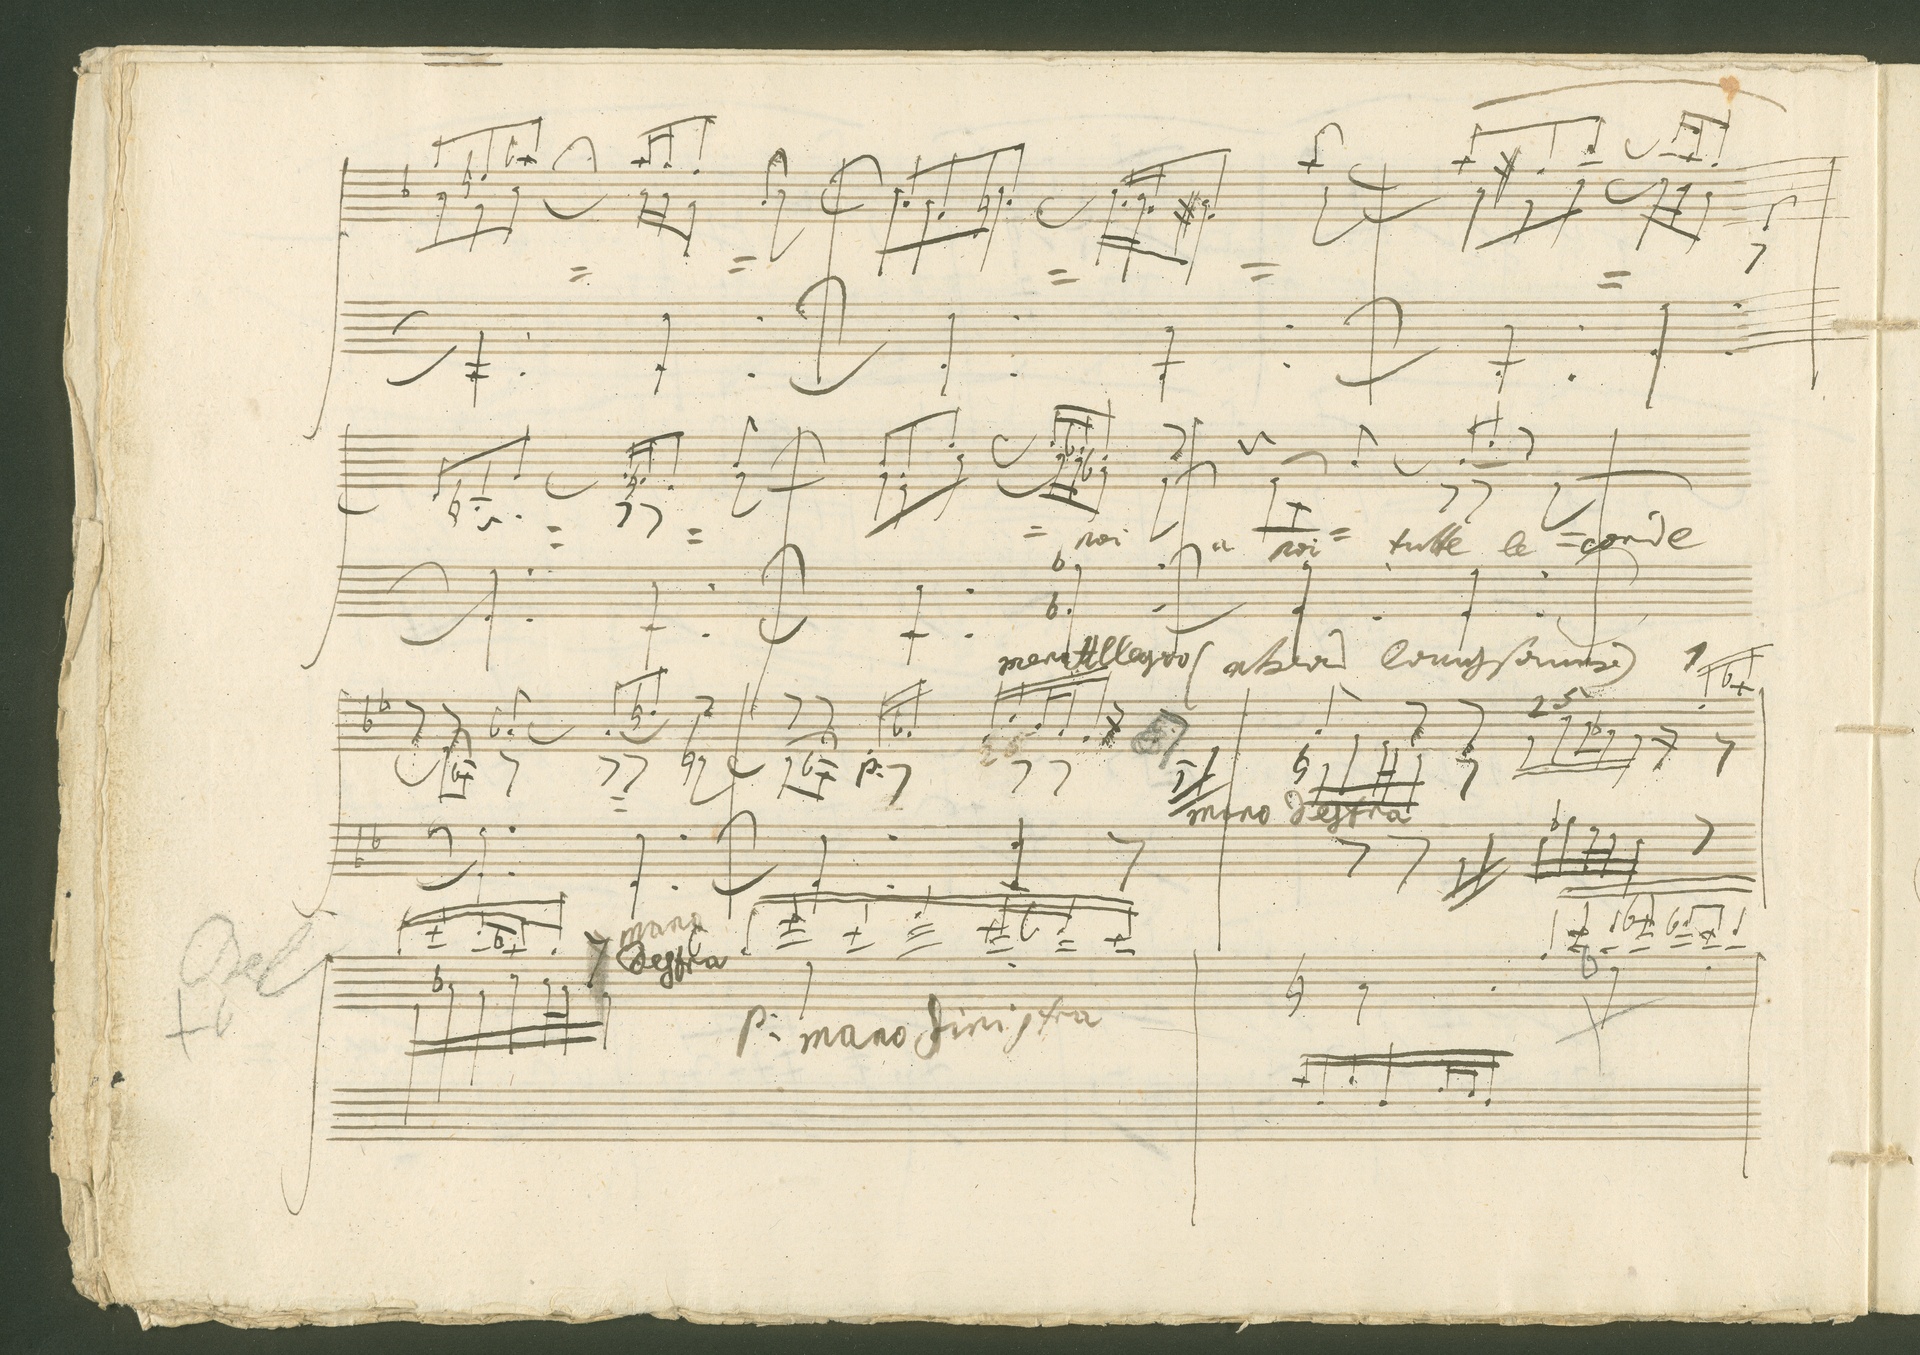 poi a poi tutte le corde
meno Allegro
mano destra
mano
destra
p: mano sinistra